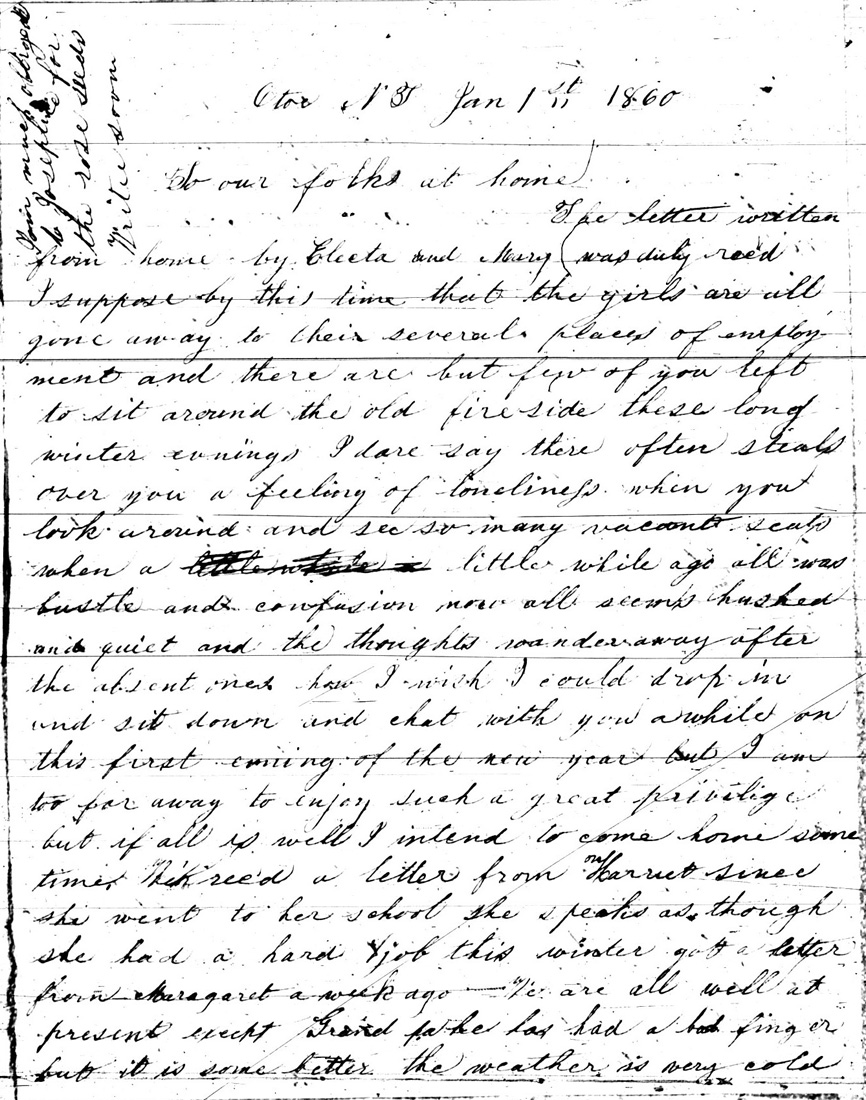 I am much obliged
to Josephine for
the rose seeds
Write soon
Otto N Y Jan 1st 1860
To our folks at home
The letter written
from home by Electa and Mary was duly rec'd
I suppose by this time that the girls are all
gone away to their several places of employ
ment and there are but few of you left
to sit around the old fireside these long
winter evnings I dare say there often steals
over you a feeling of loneliness when you
look around and see so many vacant seats
when a little while ago all was
bustle and confusion now all seems hushed
and quiet and the thoughts wander away after
the absent ones how I wish I could drop in
and sit down and chat with you awhile on
this first evning of the new year but I am
too far away to enjoy such a great privilige
but if all is well I intend to come home some
time rec'd a letter from Harriet since
she went to her school she speaks as though
she had a hard job this winter got a letter
from Maragaret a week ago — We are all well at
present except he has had a bad finger
but it is some better the weather is very cold